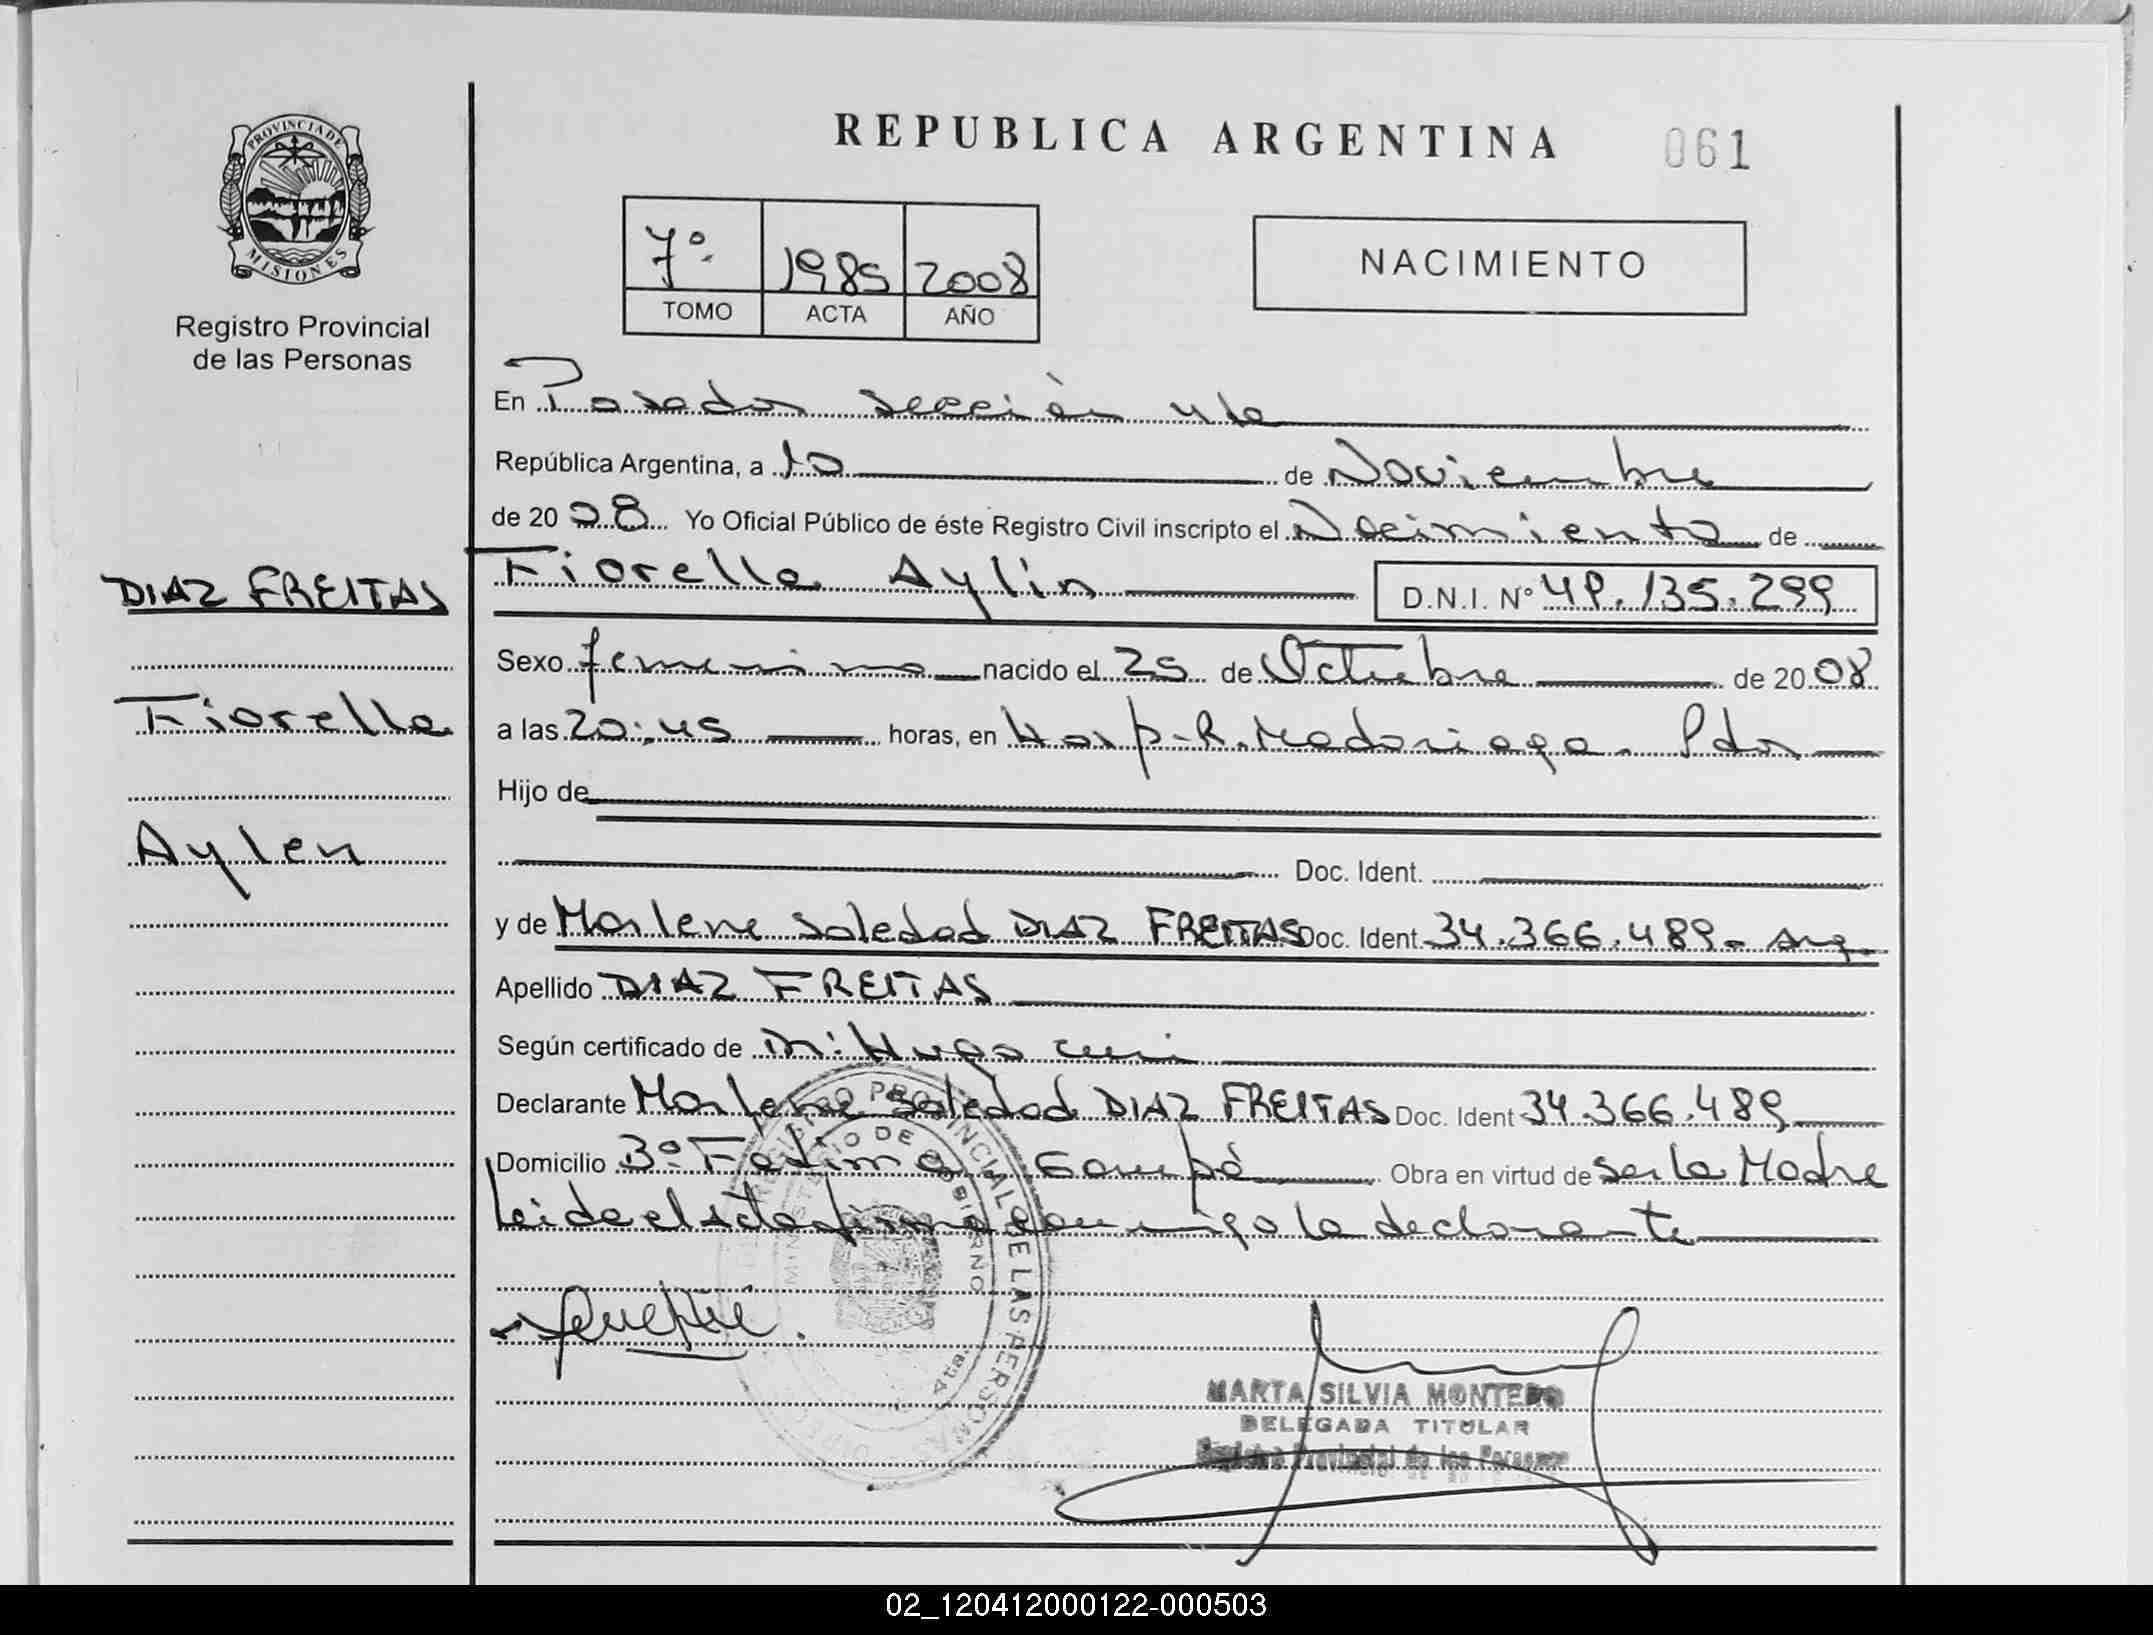 REPUBLICA ARGENTINA 061
PROVINCIA DE MISIONES
Registro Provincial
de las Personas
7º 1985 2008
TOMO ACTA AÑO
NACIMIENTO
En Posadas sección 4ta
República Argentina, a 10 de Noviembre
de 2008 Yo Oficial Público de éste Registro Civil inscripto el Nacimiento de
Fiorella Aylin D.N.I. Nº 49.135.299
DIAZ FREITAS
Fiorella
Aylen
Sexo femenino nacido el 25 de Octubre de 2008
a las 20:45 horas, en Hosp. R. Madariaga. Pdas
Hijo de
Doc. Ident.
y de Marlene Soledad DIAZ FREITAS Doc. Ident. 34.366.489- Arg.
Apellido DIAZ FREITAS
Según certificado de Dr: Hugo
Declarante Marlene Soledad DIAZ FREITAS Doc. Ident 34.366.489
Domicilio Bº Fatima Garupá Obra en virtud de ser la Madre
Leida el acta firma conmigo la declarante
REGISTRO PROVINCIAL DE LAS PERSONAS
MINISTERIO DE GOBIERNO
MARTA SILVIA MONTERO
DELEGADA TITULAR
Registro Provincial de las Personas
02_120412000122-000503